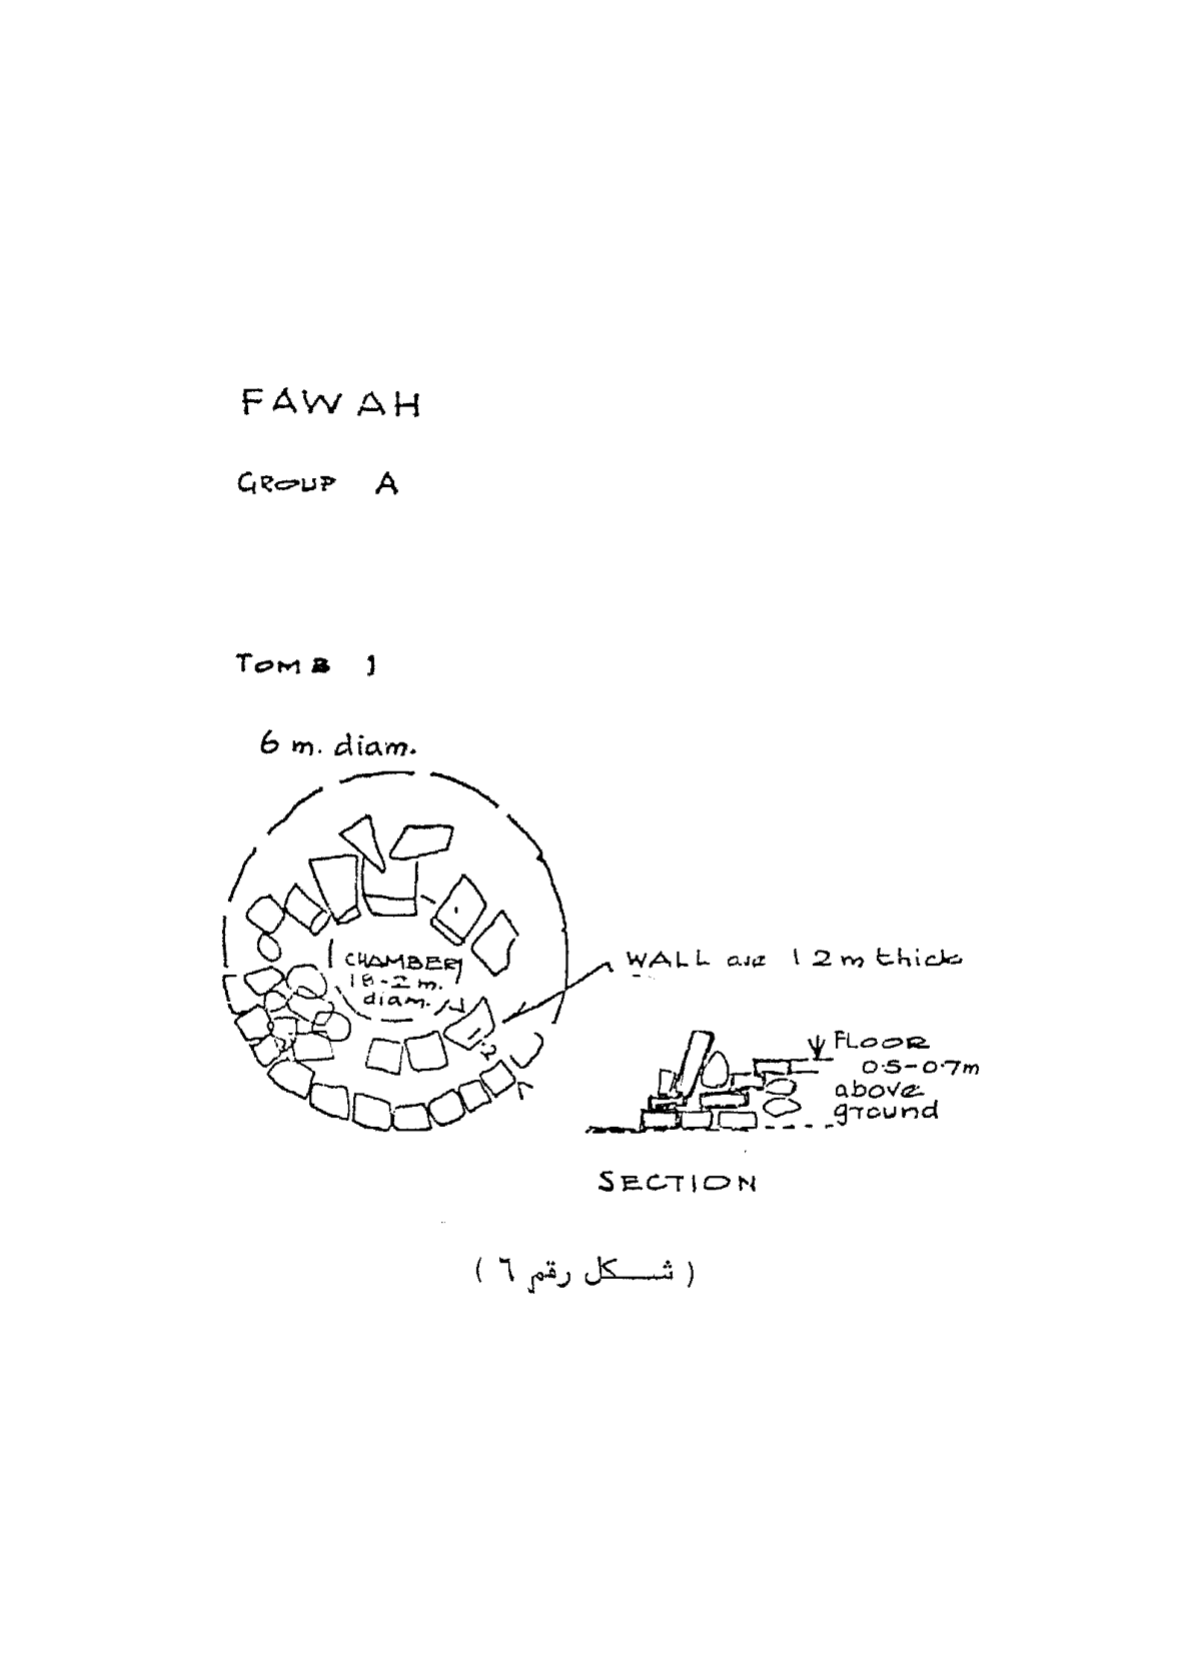 FAWAH
GROUP A
TOMB 1
6 m. diam.
CHAMBER
18-2 m.
diam.
WALL are 12m thick
1.2
FLOOR
0.5-0.7m
above
ground
SECTION
( شكل رقم ٦ )